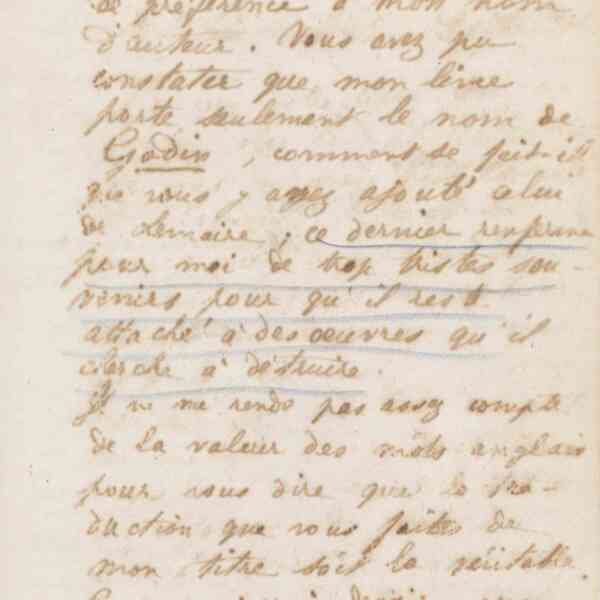 de préférence à mon nom
d'auteur. Vous avez pu
constater que mon livre
porte seulement le nom de
Godin, comment se fait-il
que vous y ayez ajouté celui
de Lemaire; ce dernier renferme
pour moi de trop tristes sou-
venirs pour qu'il reste
attaché à des œuvres qu'il
cherche à détruire.
Je ne me rends pas assez compte
de la valeur des mots anglais
pour vous dire que la tra-
duction que vous faites de
mon titre soit la véritable